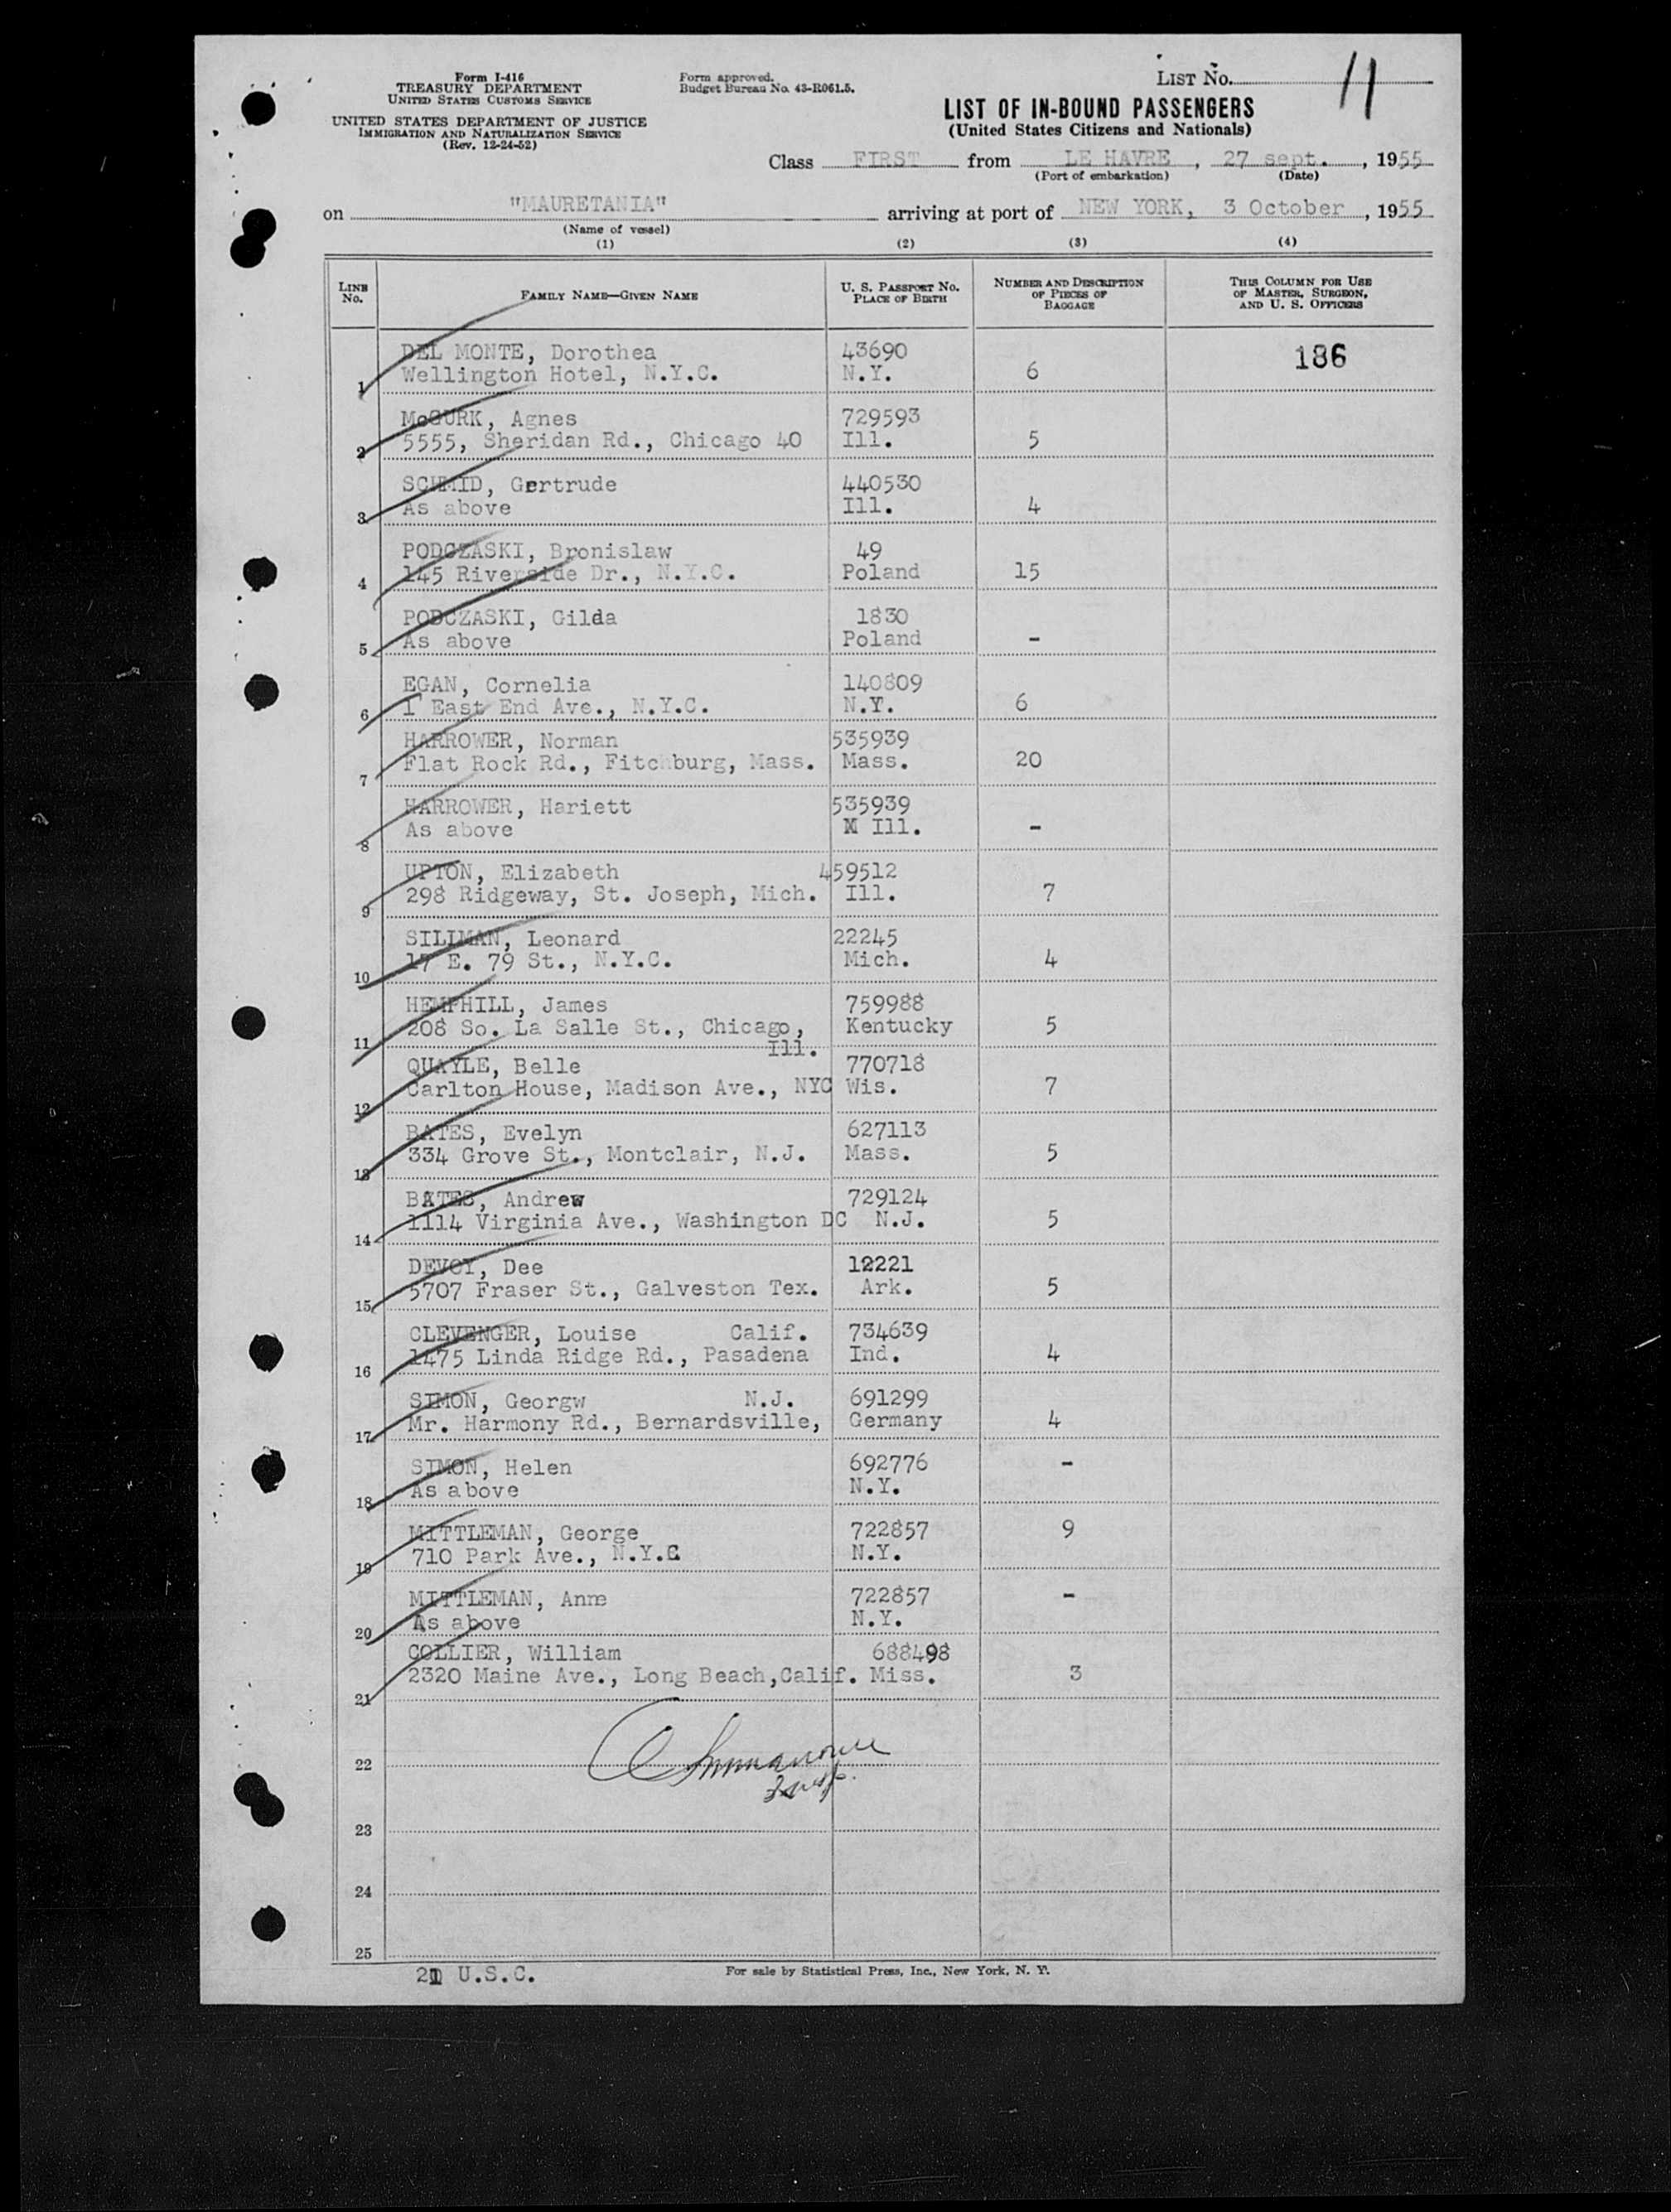 Form I-416
TREASURY DEPARTMENT
UNITED STATES CUSTOMS SERVICE
UNITED STATES DEPARTMENT OF JUSTICE
IMMIGRATION AND NATURALIZATION SERVICE
(Rev. 12-24-52)
Form approved.
Budget Bureau No. 43-R061.5.
LIST NO. 11
LIST OF IN-BOUND PASSENGERS
(United States Citizens and Nationals)
Class FIRST from LE HAVRE, 27 sept., 1955
(Port of embarkation) (Date)
on "MAURETANIA" arriving at port of NEW YORK, 3 October, 1955
(Name of vessel)
(1) (2) (3) (4)
LINE No. FAMILY NAME—GIVEN NAME U. S. PASSPORT NO. PLACE OF BIRTH NUMBER AND DESCRIPTION OF PIECES OF BAGGAGE THIS COLUMN FOR USE OF MASTER, SURGEON, AND U. S. OFFICERS
DEL MONTE, Dorothea 43690 186
1 Wellington Hotel, N.Y.C. N.Y. 6
McGURK, Agnes 729593
2 5555, Sheridan Rd., Chicago 40 Ill. 5
SCHMID, Gertrude 440530
3 As above Ill. 4
PODCZASKI, Bronislaw 49
4 145 Riverside Dr., N.Y.C. Poland 15
PODCZASKI, Gilda 1830
5 As above Poland -
EGAN, Cornelia 140809
6 1 East End Ave., N.Y.C. N.Y. 6
HARROWER, Norman 535939
7 Flat Rock Rd., Fitchburg, Mass. Mass. 20
HARROWER, Hariett 535939
8 As above M Ill. -
UPTON, Elizabeth 459512
9 298 Ridgeway, St. Joseph, Mich. Ill. 7
SILLMAN, Leonard 22245
10 17 E. 79 St., N.Y.C. Mich. 4
HEMPHILL, James 759988
11 208 So. La Salle St., Chicago, Kentucky 5
Ill.
QUAYLE, Belle 770718
12 Carlton House, Madison Ave., NYC Wis. 7
BATES, Evelyn 627113
13 334 Grove St., Montclair, N.J. Mass. 5
BATES, Andrew 729124
14 1114 Virginia Ave., Washington DC N.J. 5
DEVOY, Dee 12221
15 5707 Fraser St., Galveston Tex. Ark. 5
CLEVENGER, Louise Calif. 734639
16 1475 Linda Ridge Rd., Pasadena Ind. 4
SIMON, Georgw N.J. 691299
17 Mr. Harmony Rd., Bernardsville, Germany 4
SIMON, Helen 692776 -
18 As above N.Y.
MITTLEMAN, George 722857 9
19 710 Park Ave., N.Y.C N.Y.
MITTLEMAN, Anne 722857 -
20 As above N.Y.
COLLIER, William 688498
21 2320 Maine Ave., Long Beach,Calif. Miss. 3
22
23
24
25
21 U.S.C.
For sale by Statistical Press, Inc., New York, N. Y.